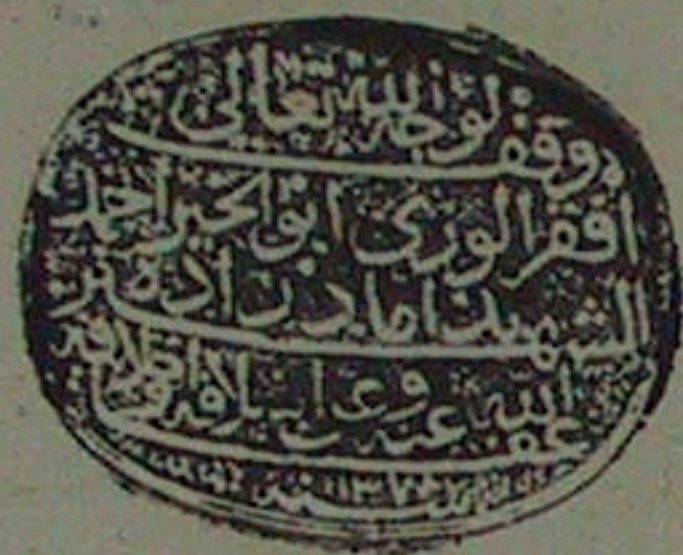 وقف لوجه الله تعالى
افقر الورى ابو الخير احمد
الشهير بداماد زاده
عفا الله عنه وعن اسلافه
سنة